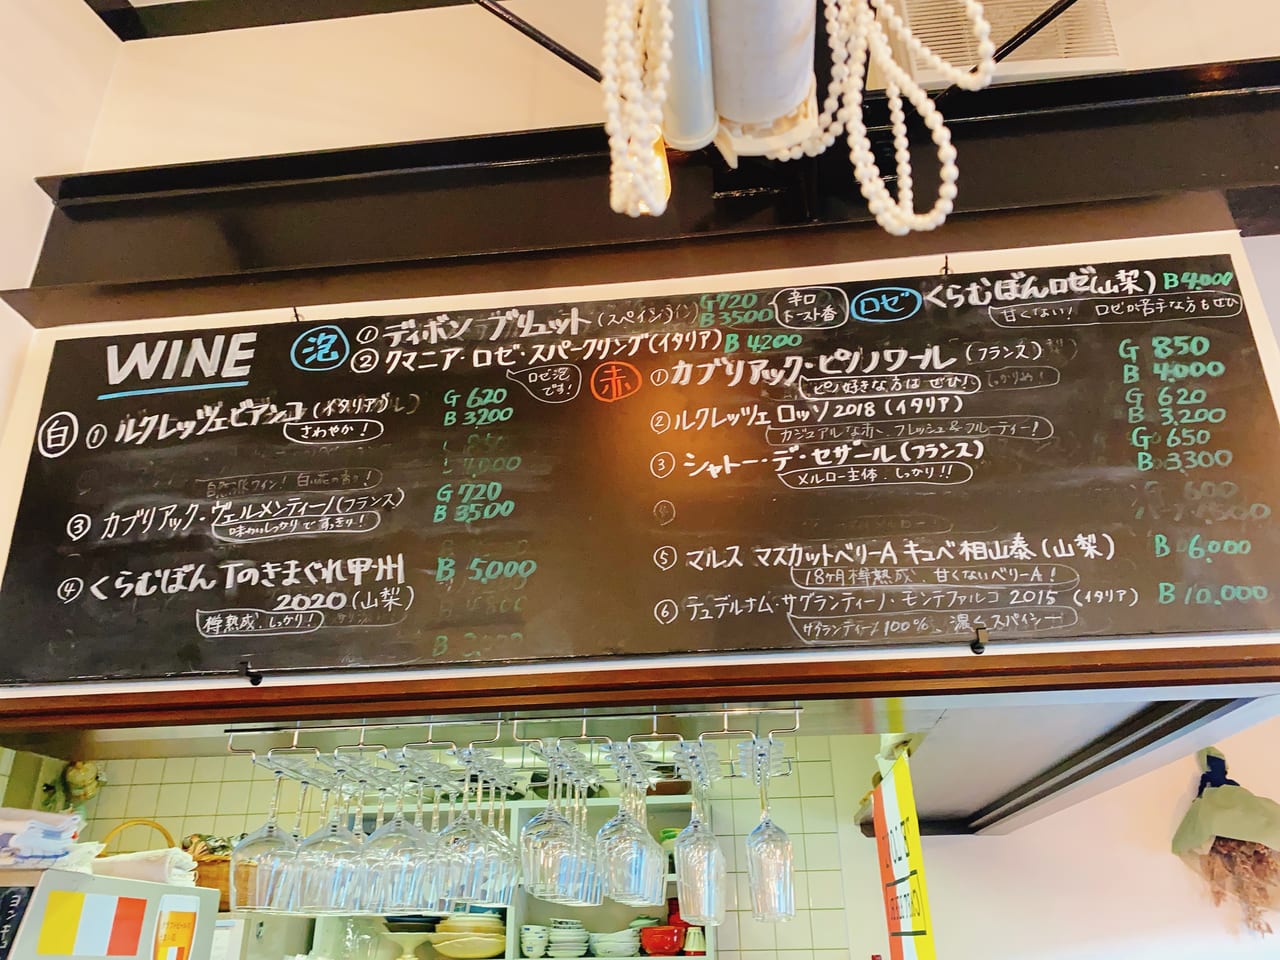 WINE
泡
① ディボン ブリュット (スペイン) G 720
B 3500
辛口
トースト香
② クマニア・ロゼ・スパークリング (イタリア) B 4200
ロゼ泡
です!
ロゼ
くらむぼんロゼ(山梨) B 4,000
甘くない! ロゼが苦手な方もぜひ
白
① ルクレッツェビアンコ (イタリア) G 620
B 3200
さわやか!
自然派ワイン! 白花の香り!
③ カブリアック・ヴェルメンティーノ (フランス) G 720
B 3500
味わいしっかりですっきり!
④ くらむぼん Tのきまぐれ甲州 B 5,000
2020 (山梨)
樽熟成、しっかり!
赤
① カブリアック・ピノノワール (フランス) G 850
B 4,000
ピノ好きな方は ぜひ!
② ルクレッツェ ロッソ 2018 (イタリア) G 620
B 3,200
カジュアルな赤、フレッシュ&フルーティー!
③ シャトー・デ・セザール (フランス) G 650
B 3,300
メルロー主体 しっかり!!
⑤ マルス マスカットベリーA キュベ 相山泰 (山梨) B 6,000
18ヶ月樽熟成、甘くないベリーA!
⑥ テュデルナム・サグランティーノ・モンテファルコ 2015 (イタリア) B 10,000
サグランティーノ100%、濃くスパイシー